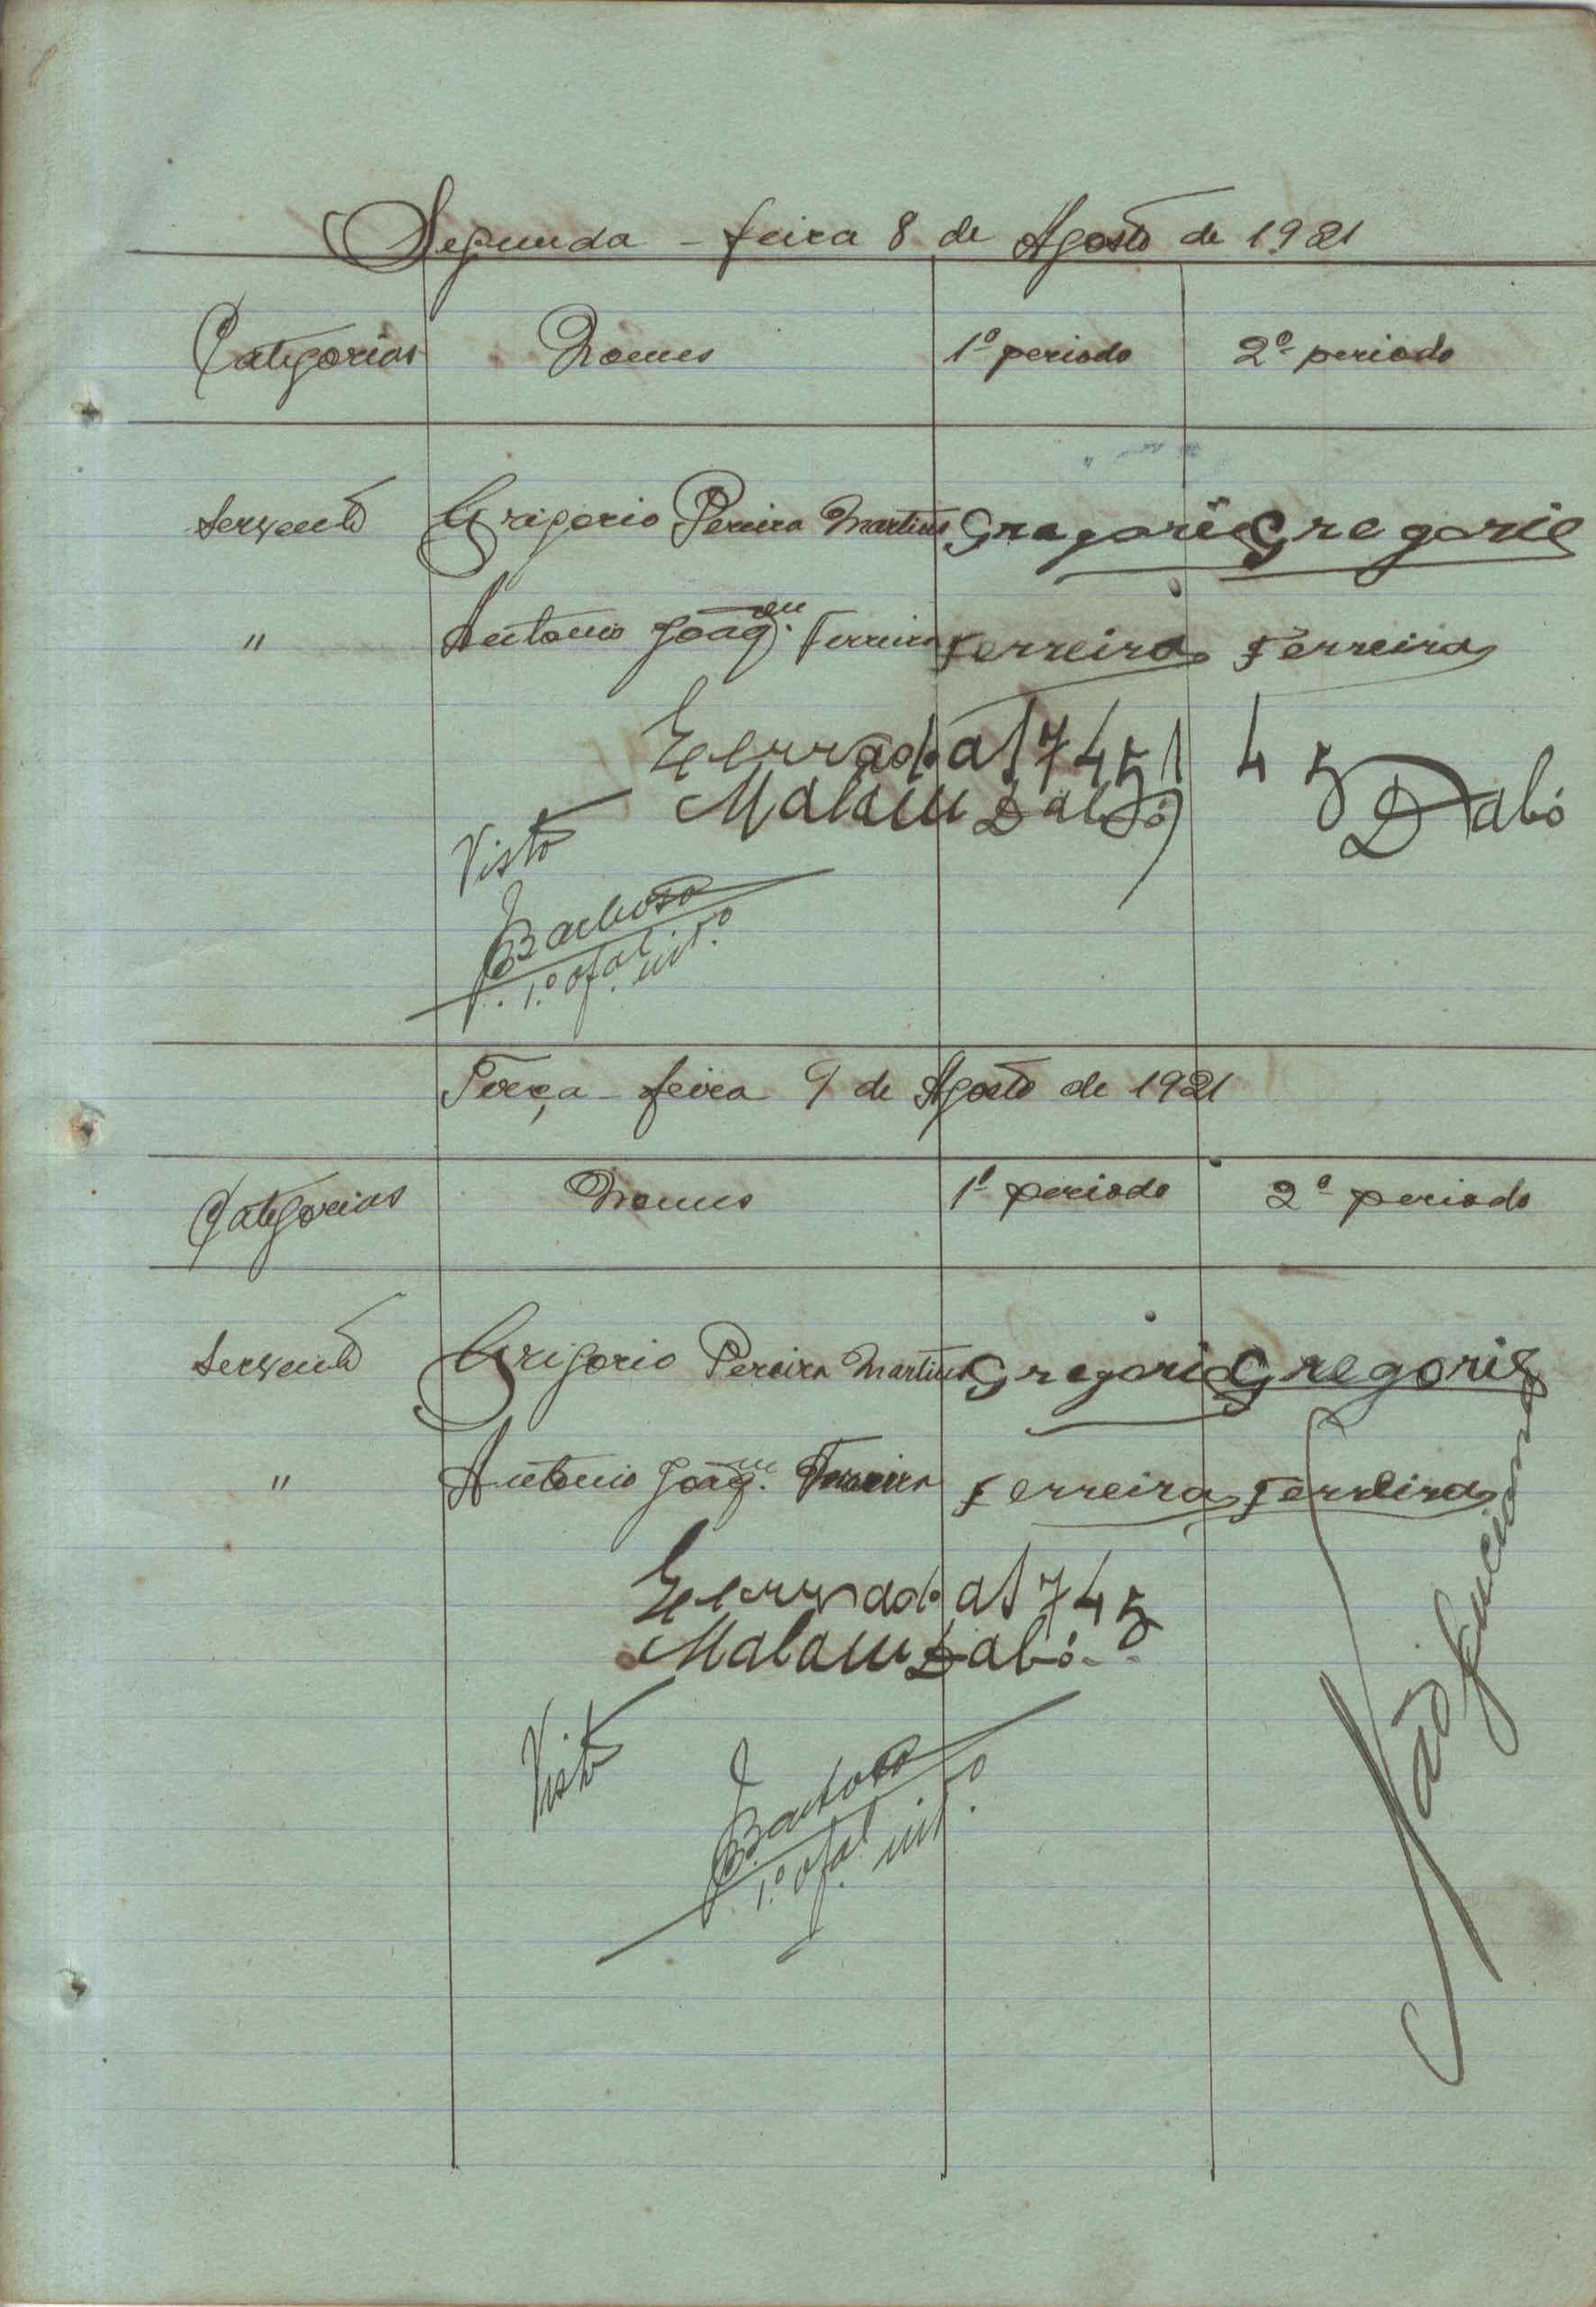 Segunda - feira 8 de Agosto de 1921
Categorias Nomes 1º periodo 2º periodo
Servente Grigorio Pereira Martins Gregorio Gregorio
" Antonio Joaqm. Ferreira Ferreira Ferreira
Encerrado as 7 45 4 5 Dabó
Malam Dabó
Visto
Barbosa
1.º ofal. intº.
Terça - feira 9 de Agosto de 1921
Categorias Nomes 1º periodo 2º periodo
Servente Grigorio Pereira Martins Gregorio Gregorio
" Antonio Joaqm. Ferreira Ferreira Ferreira
Encerrado as 7 45
Malam Dabó
Visto
Barbosa
1.º ofal. intº.
Não funcionou